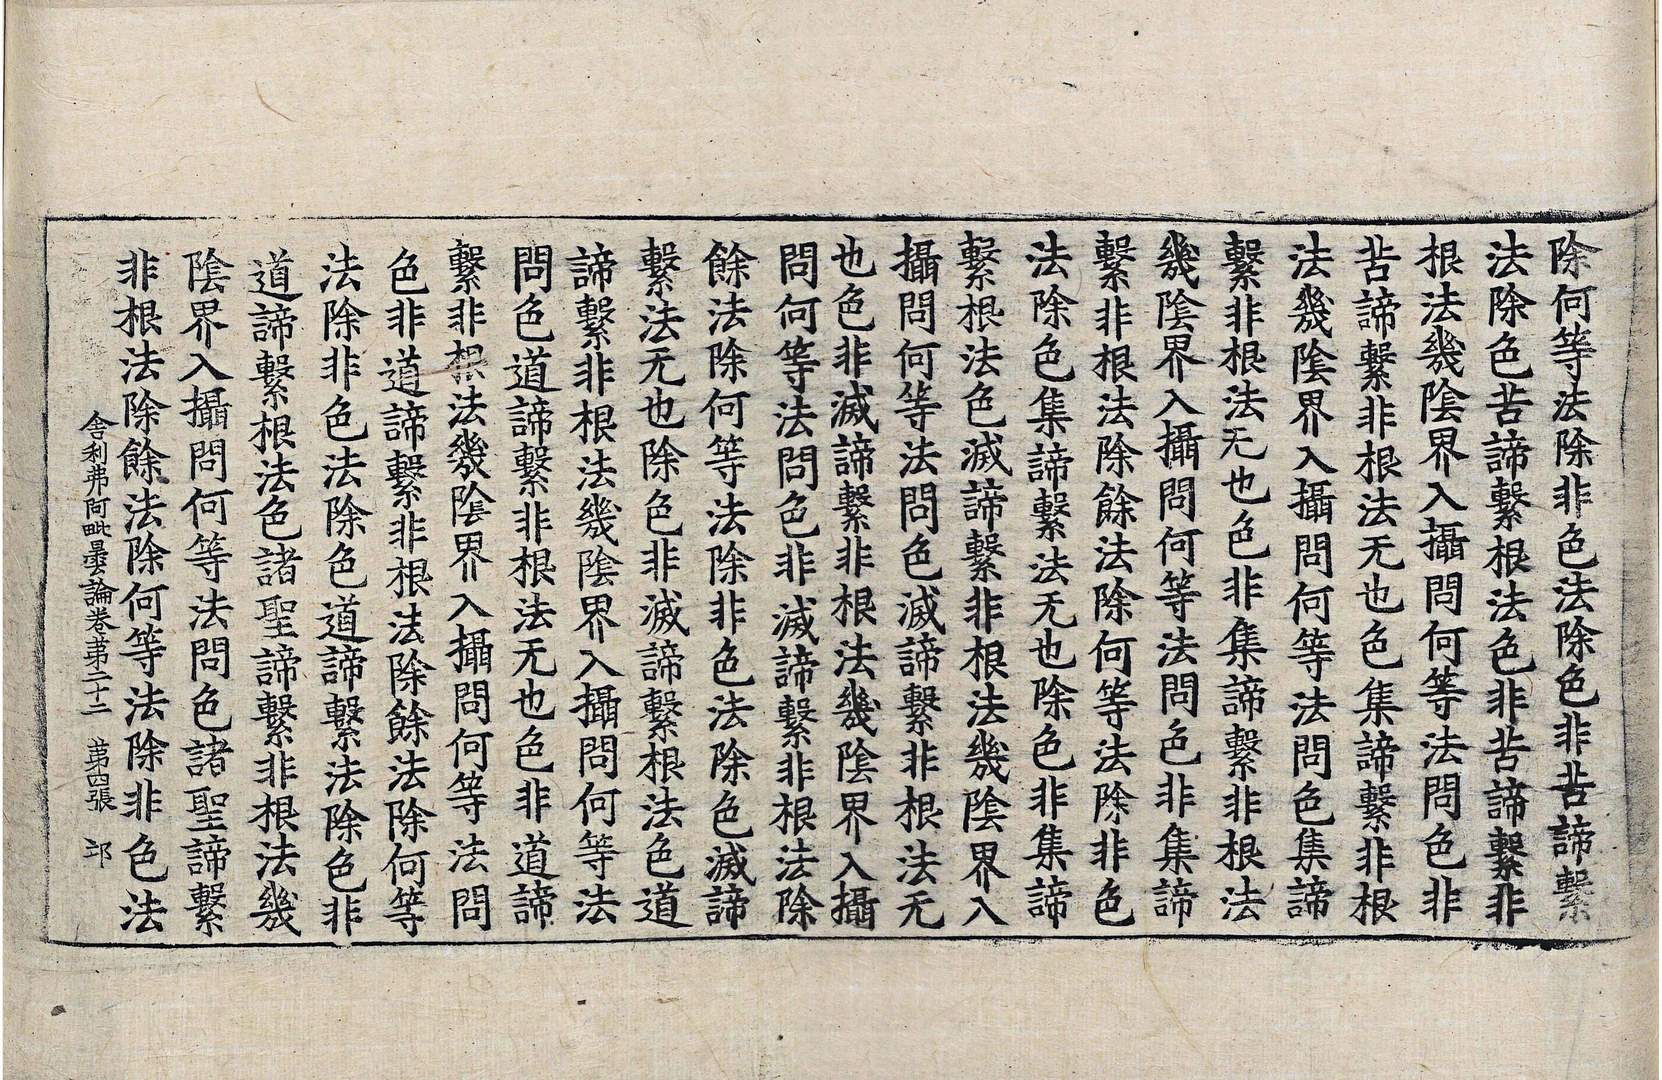 除何等法除非色法除色非苦諦繫
法除色苦諦繫根法色非苦諦繫非
根法幾陰界入攝問何等法問色非
苦諦繫非根法无也色集諦繫非根
法幾陰界入攝問何等法問色集諦
繫非根法无也色非集諦繫非根法
幾陰界入攝問何等法問色非集諦
繫非根法除餘法除何等法除非色
法除色集諦繫法无也除色非集諦
繫根法色滅諦繫非根法幾陰界入
攝問何等法問色滅諦繫非根法无
也色非滅諦繫非根法幾陰界入攝
問何等法問色非滅諦繫非根法除
餘法除何等法除非色法除色滅諦
繫法无也除色非滅諦繫根法色道
諦繫非根法幾陰界入攝問何等法
問色道諦繫非根法无也色非道諦
繫非根法幾陰界入攝問何等法問
色非道諦繫非根法除餘法除何等
法除非色法除色道諦繫法除色非
道諦繫根法色諸聖諦繫非根法幾
陰界入攝問何等法問色諸聖諦繫
非根法除餘法除何等法除非色法
舍利弗阿毗曇論卷第二十二 第四張 邙